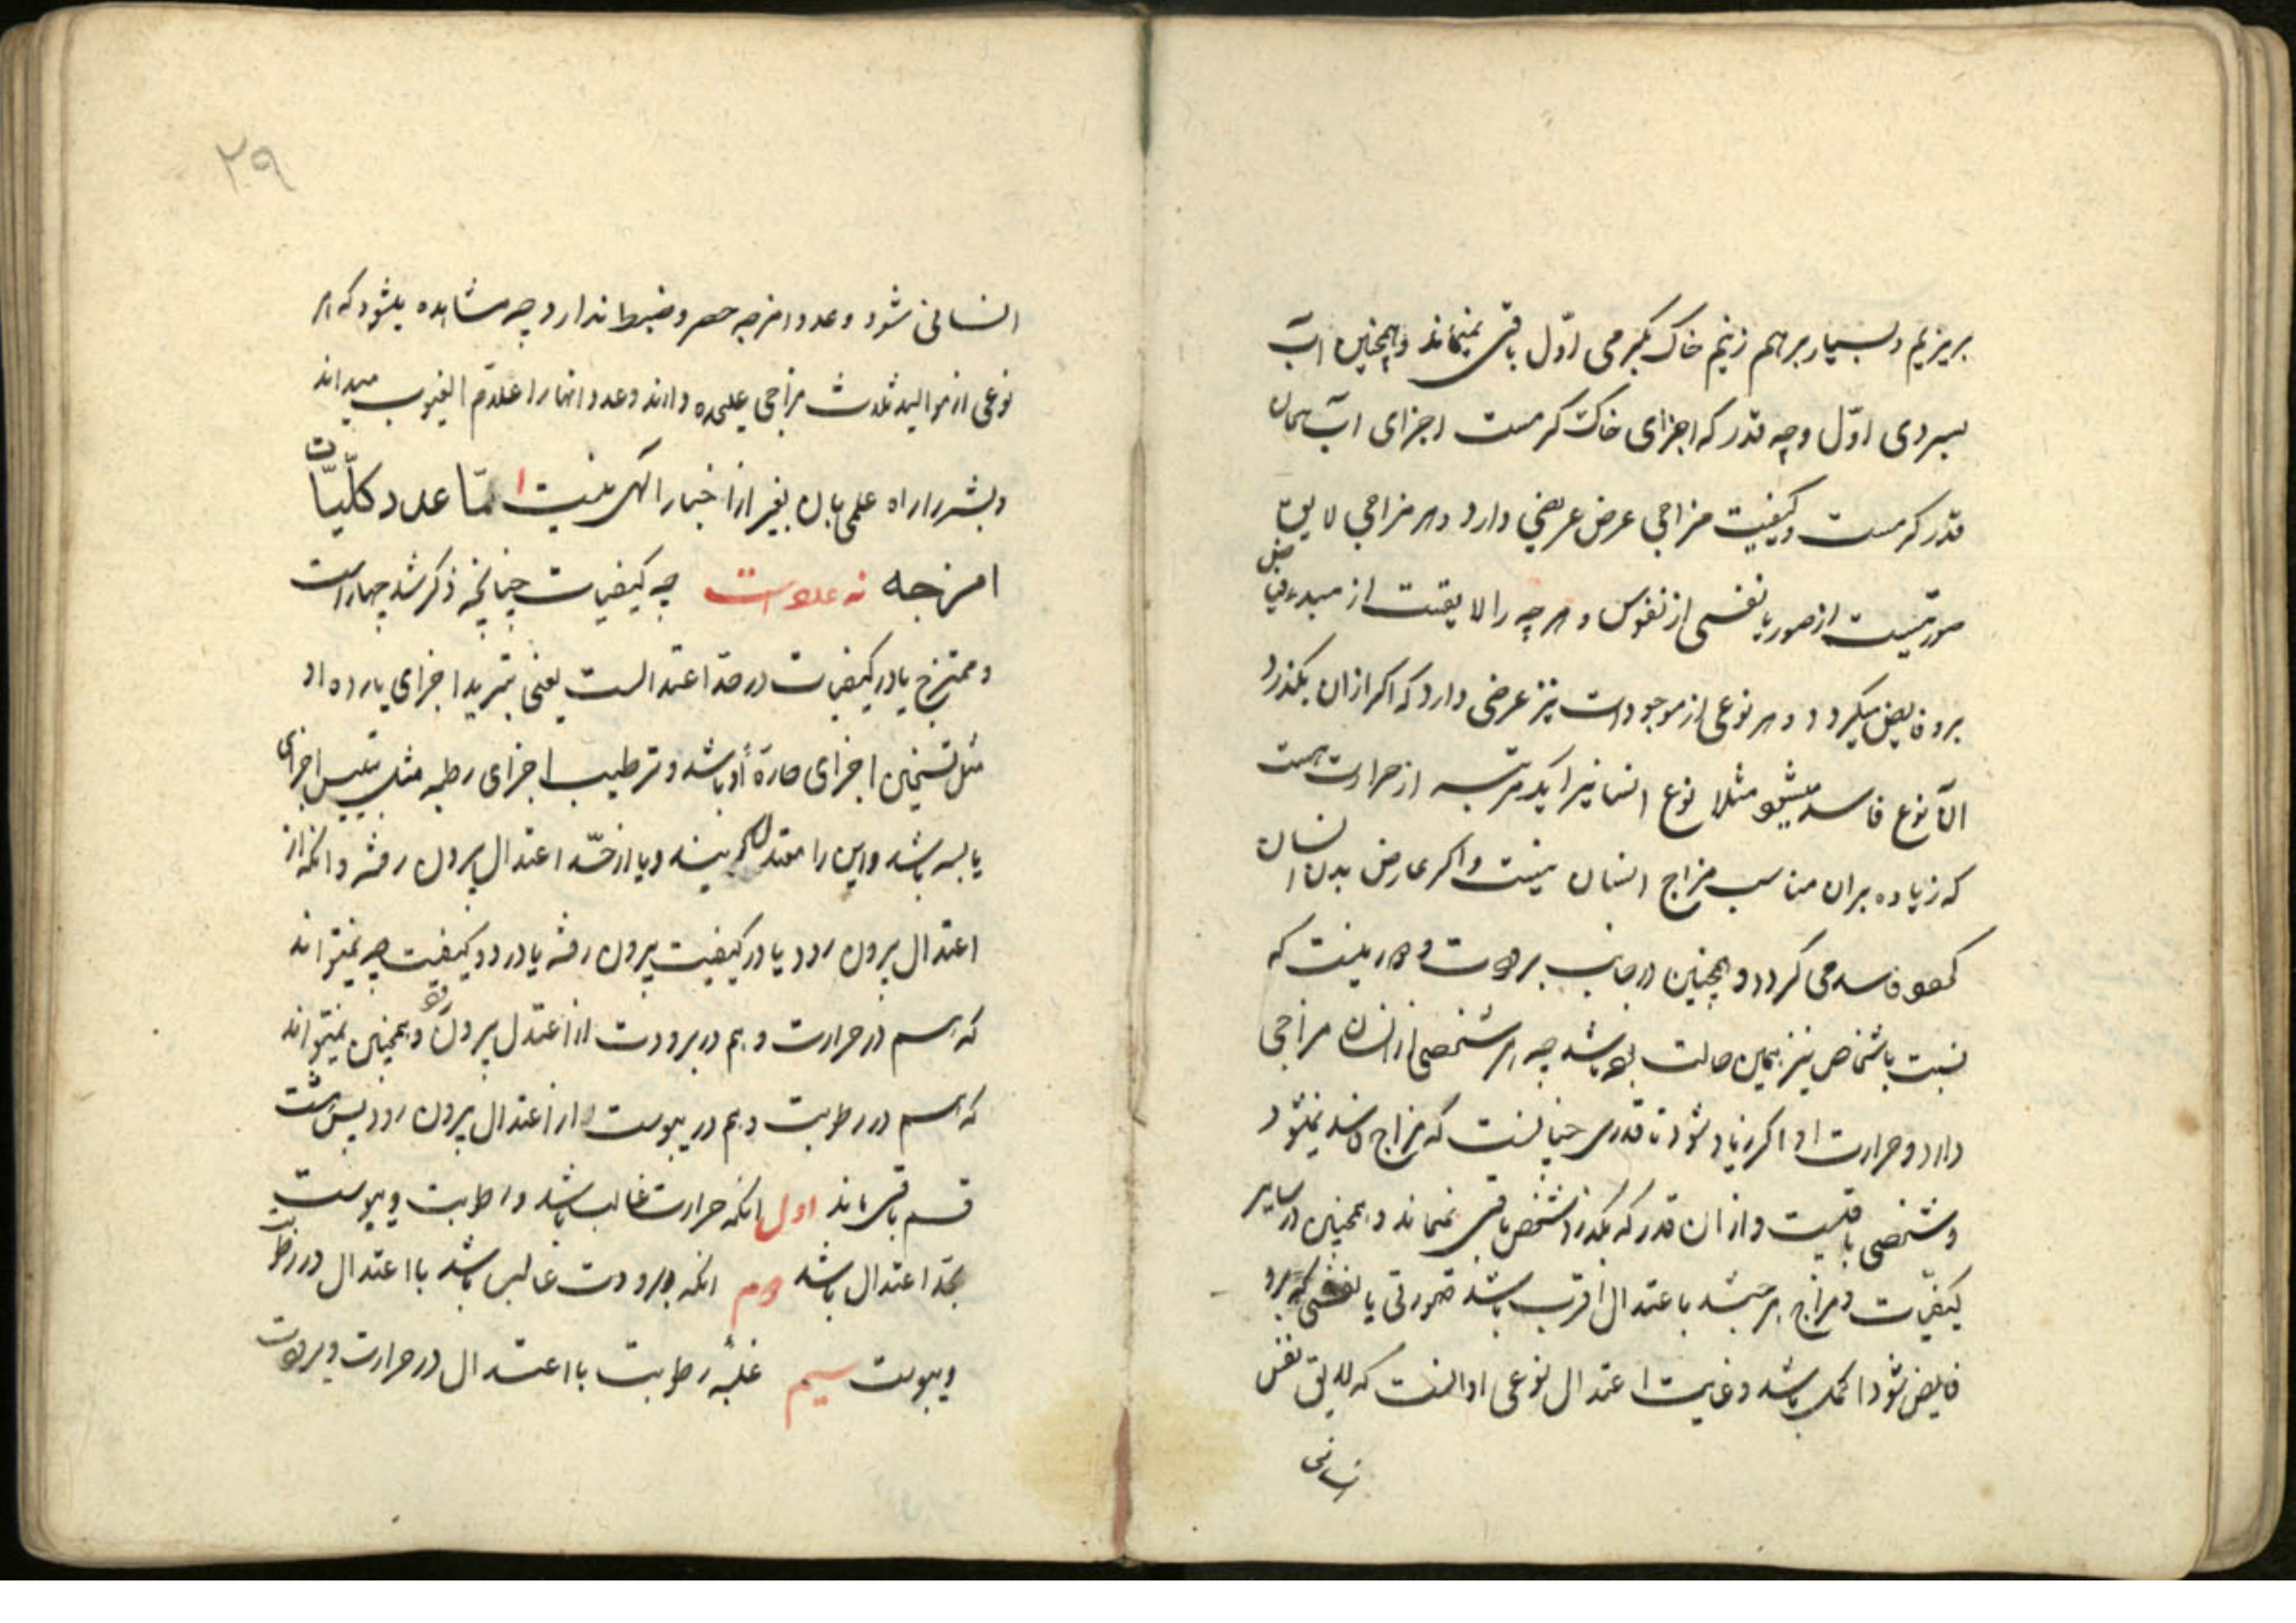 بریزیم و بسیار برهم زنیم خاک بگرمی اوّل باقی نمیماند و همچنین آب
بسردی اوّل و چه قدر که اجزای خاک گرمست اجزای آب همان
قدر گرمست و کیفیت مزاجی عرض عریضی دارد و هر مزاجی لایق
صورتیست از صور یا نفسی از نفوس و هر چه را لایقست از مبدء فیاض
برو فایض میگردد و هر نوعی از موجودات نیز عرضی دارد که اگر ازان بگذرد
آن نوع فاسد میشود مثلا نوع انسانیرا یکمرتبه از حرارت هست
که زیاده بران مناسب مزاج انسان نیست و اگر عارض بدن انسان
شود فاسد می گردد و همچنین در جانب برودت و
نسبت باشخاص نیز همین حالت بوده باشد چه هر شخصی از انسان مزاجی
دارد و حرارت او اگر زیاد شود تا قدری چنانست که مزاج فاسد نمیشود
و شخصی باقیست و ازان قدر که بگذرد شخص باقی نمیماند و همچنین در سایر
کیفیات و مزاج هر چند باعتدال اقرب باشد صورتی یا نفسی که برو
فایض شود اکمل باشد و غایت اعتدال نوعی او آنست که لایق نفس
انسانی
۲۹
انسانی شود و عدد امزجه حصر و ضبط ندارد چه مشاهده میشود که هر
نوعی از موالید ثلاث مزاجی علیحده دارند و عدد انها را علام الغیوب میداند
و بشر را راه علمی بان بغیر از اخبار الهی نیست امّا عدد کلّیات
امزجه نه عدد است چه کیفیات چنانچه ذکر شد چهار است
و ممتزج یا در کیفیات در حدّ اعتدالست یعنی تبرید اجزای بارده او
مثل تسخین اجزای حارّة او باشد و ترطیب اجزای رطبه مثل تیبیس اجزای
یابسه باشد و این را معتدل بینند و یا از حدّ اعتدال بیرون رفته و انکه از
اعتدال بیرون رود یا در کیفیت بیرون رفته یا در دو کیفیت چه نمیتواند
که هم در حرارت و هم در برودت از اعتدل بیرون رود و همچنین نمیتواند
که هم در رطوبت و هم در یبوست از اعتدال بیرون رود پس هشت
قسم باقی ماند اول انکه حرارت غالب باشد و رطوبت و یبوست
بحدّ اعتدال باشد دوم انکه برودت غالب باشد با اعتدال در رطوبت
و یبوست سیم غلبه رطوبت با اعتدال در حرارت و برودت